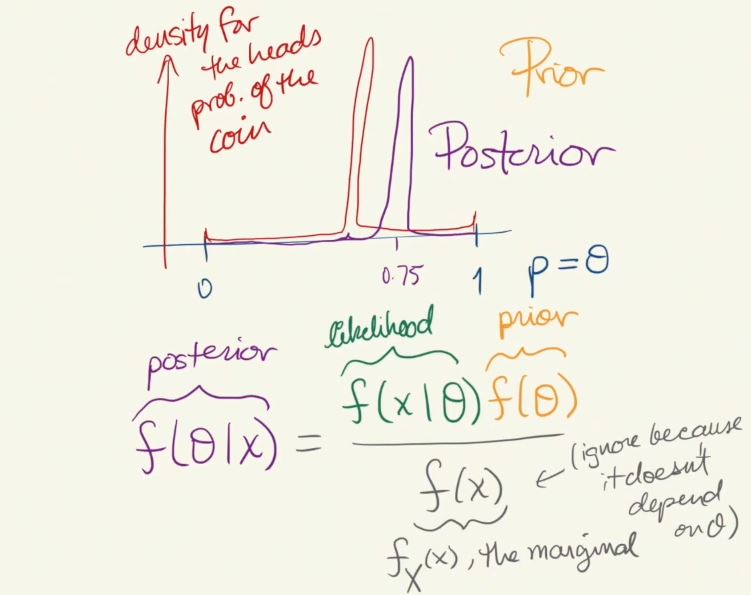 density for
the heads
prob. of the
coin
Prior
Posterior
0
0.75
1
p = θ
posterior
likelihood
prior
f(θ|x) = f(x|θ) f(θ)
f(x)
(ignore because
it doesn't
depend
on θ)
f_X(x), the marginal